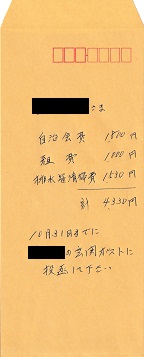 さま
自治会費 1,800円
組費 1,000円
排水管清掃費 1,530円
計 4,330円
10月31日までに
の玄関ポストに
投函して下さい